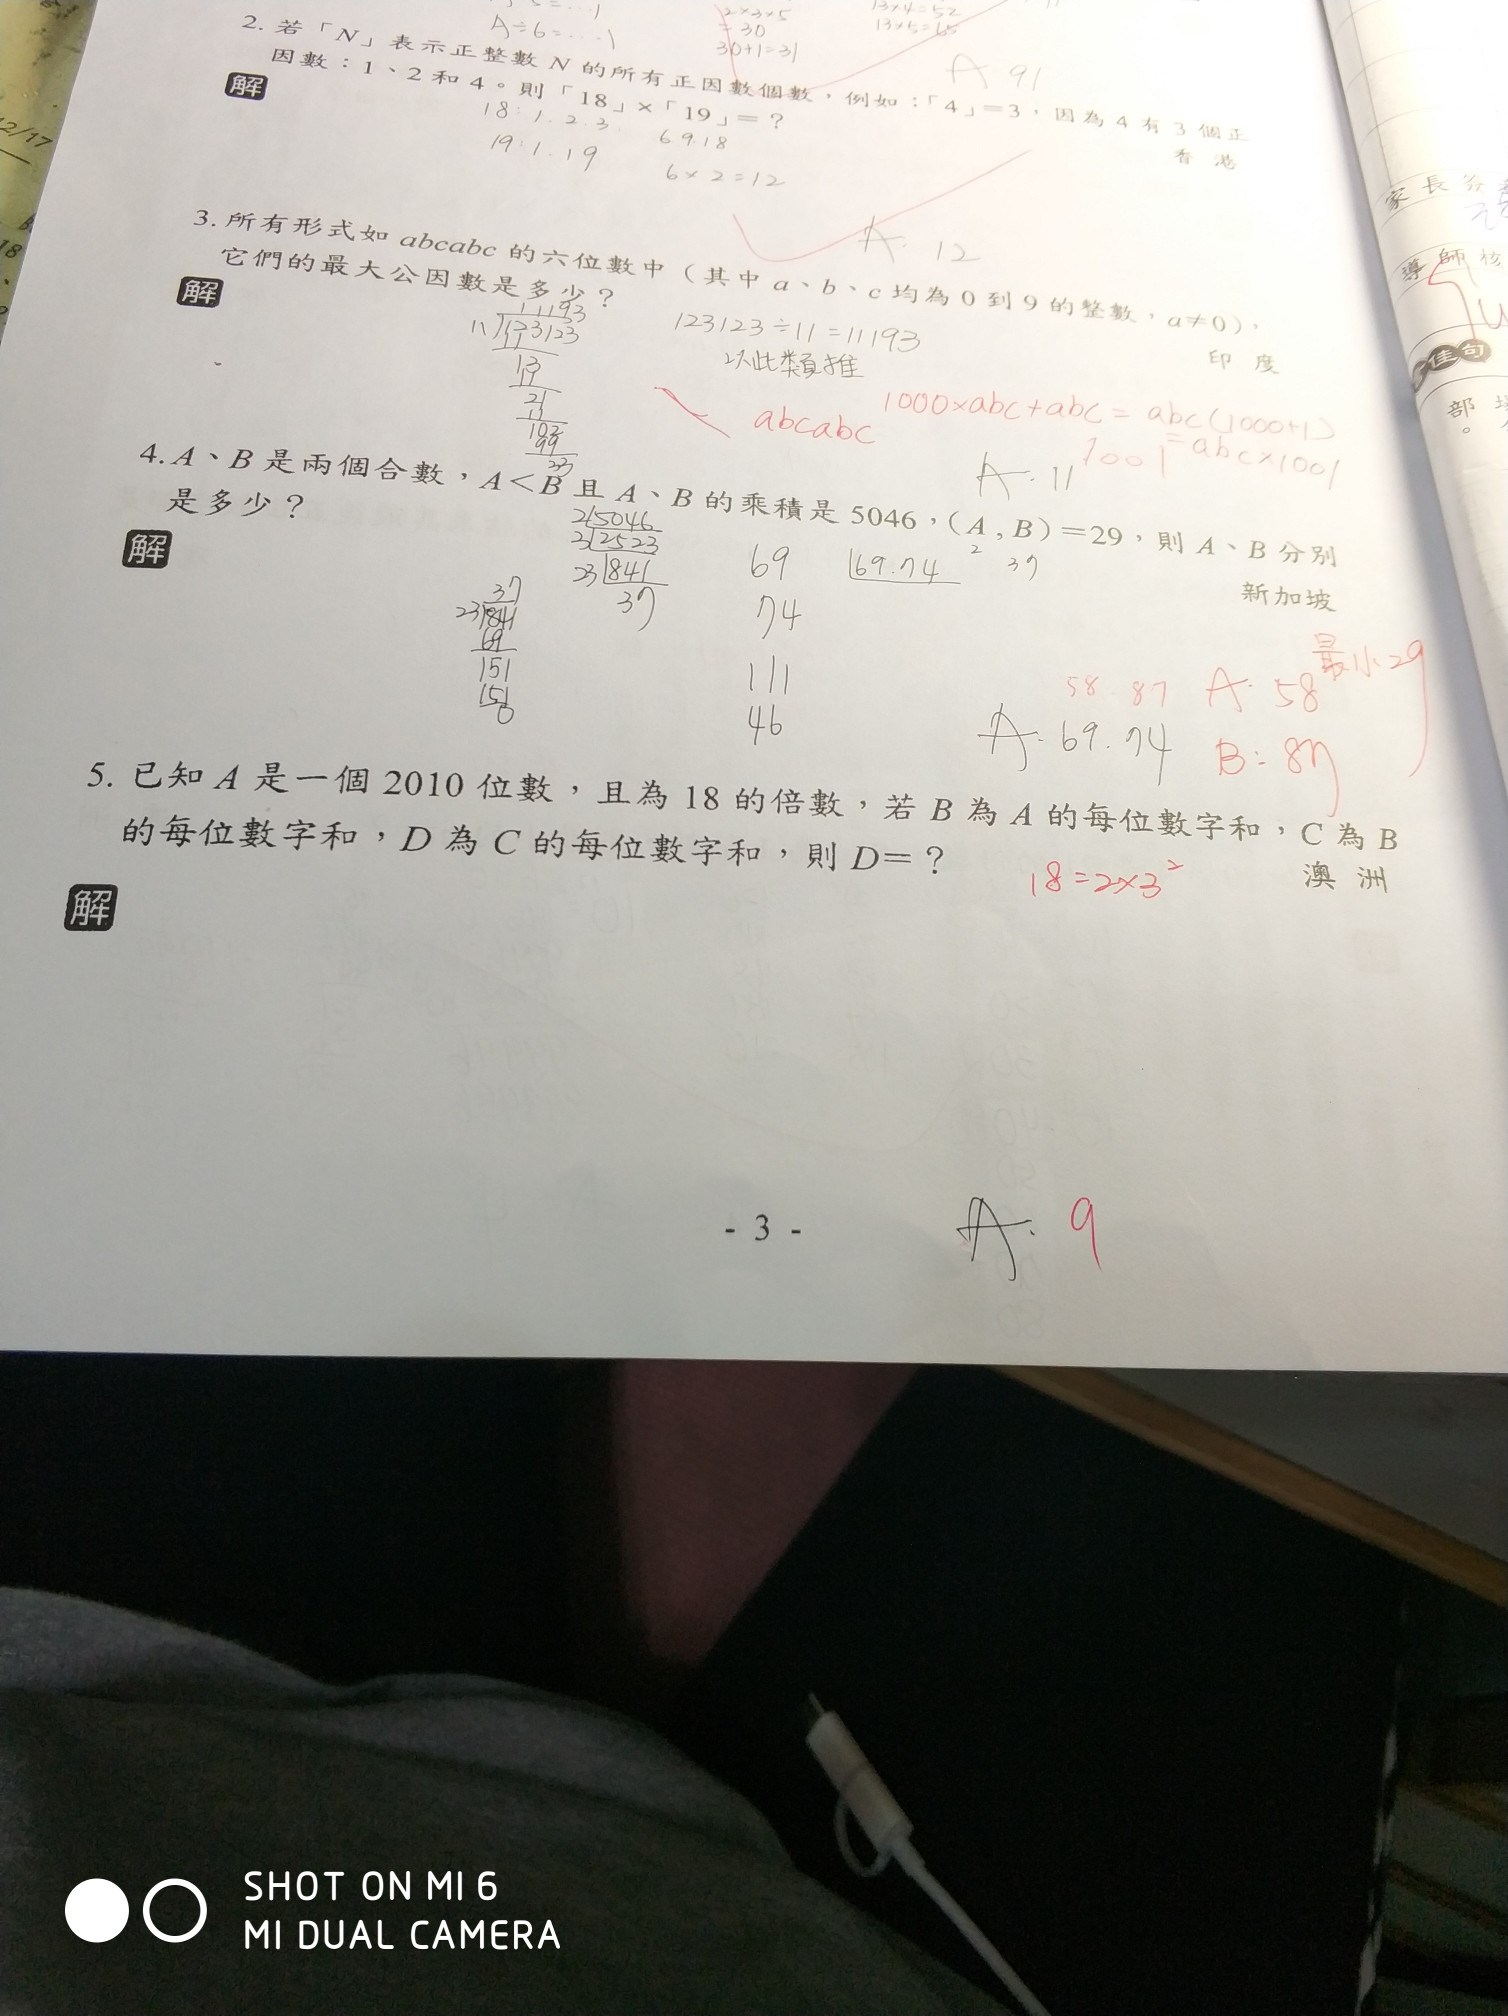 A÷6=…1
2×3×5
=30
30+1=31
13×4=52
13×5=65
A 91
2. 若「N」表示正整數 N 的所有正因數個數，例如：「4」=3，因為 4 有 3 個正
因數：1、2 和 4。則「18」×「19」=？
香 港
解
18:1.2.3. 6 9.18
19:1.19
6×2=12
A. 12
3. 所有形式如 abcabc 的六位數中（其中 a、b、c 均為 0 到 9 的整數，a≠0），
它們的最大公因數是多少？
印 度
解
11193
11 123123
11
13
11
21
11
102
99
33
123123÷11=11193
以此類推
abcabc
1000×abc+abc=abc(1000+1)
=abc×1001
1001
A. 11
4. A、B 是兩個合數，A<B 且 A、B 的乘積是 5046，(A , B)=29，則 A、B 分別
是多少？
新加坡
解
2 5046
3 2523
23 841
37
37
23 841
69
151
151
0
69
74
111
46
69.74
2 37
最小29
58.87
A: 58
B: 87
A: 69.74
5. 已知 A 是一個 2010 位數，且為 18 的倍數，若 B 為 A 的每位數字和，C 為 B
的每位數字和，D 為 C 的每位數字和，則 D=？
澳 洲
18=2×3²
解
A: 9
- 3 -
12/17
18
家長簽
導師核
佳句
部
。
SHOT ON MI 6
MI DUAL CAMERA